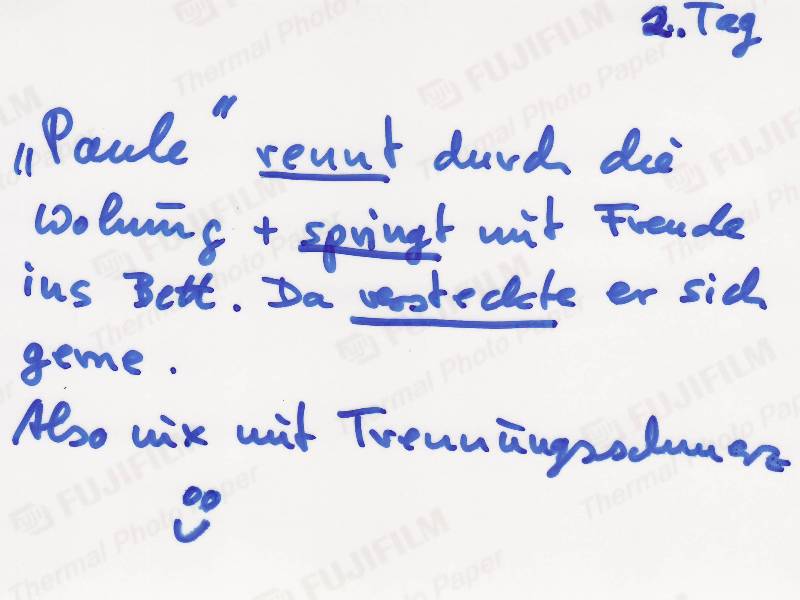 2. Tag
„Paule“ rennt durch die
Wohnung + springt mit Freude
ins Bett. Da versteckte er sich
gerne.
Also nix mit Trennungsschmerz
FUJIFILM
Thermal Photo Paper